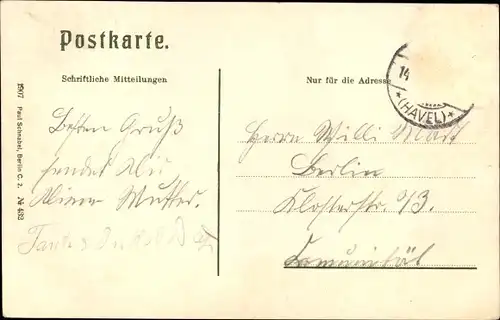 Postkarte.
Schriftliche Mitteilungen
Nur für die Adresse
14
*(HAVEL)*
1907 Paul Schnabel, Berlin C. 2. № 432
Besten Gruß
sendet Dir
Deine Mutter.
Tante
Herrn Willi
Berlin
Klosterstr.